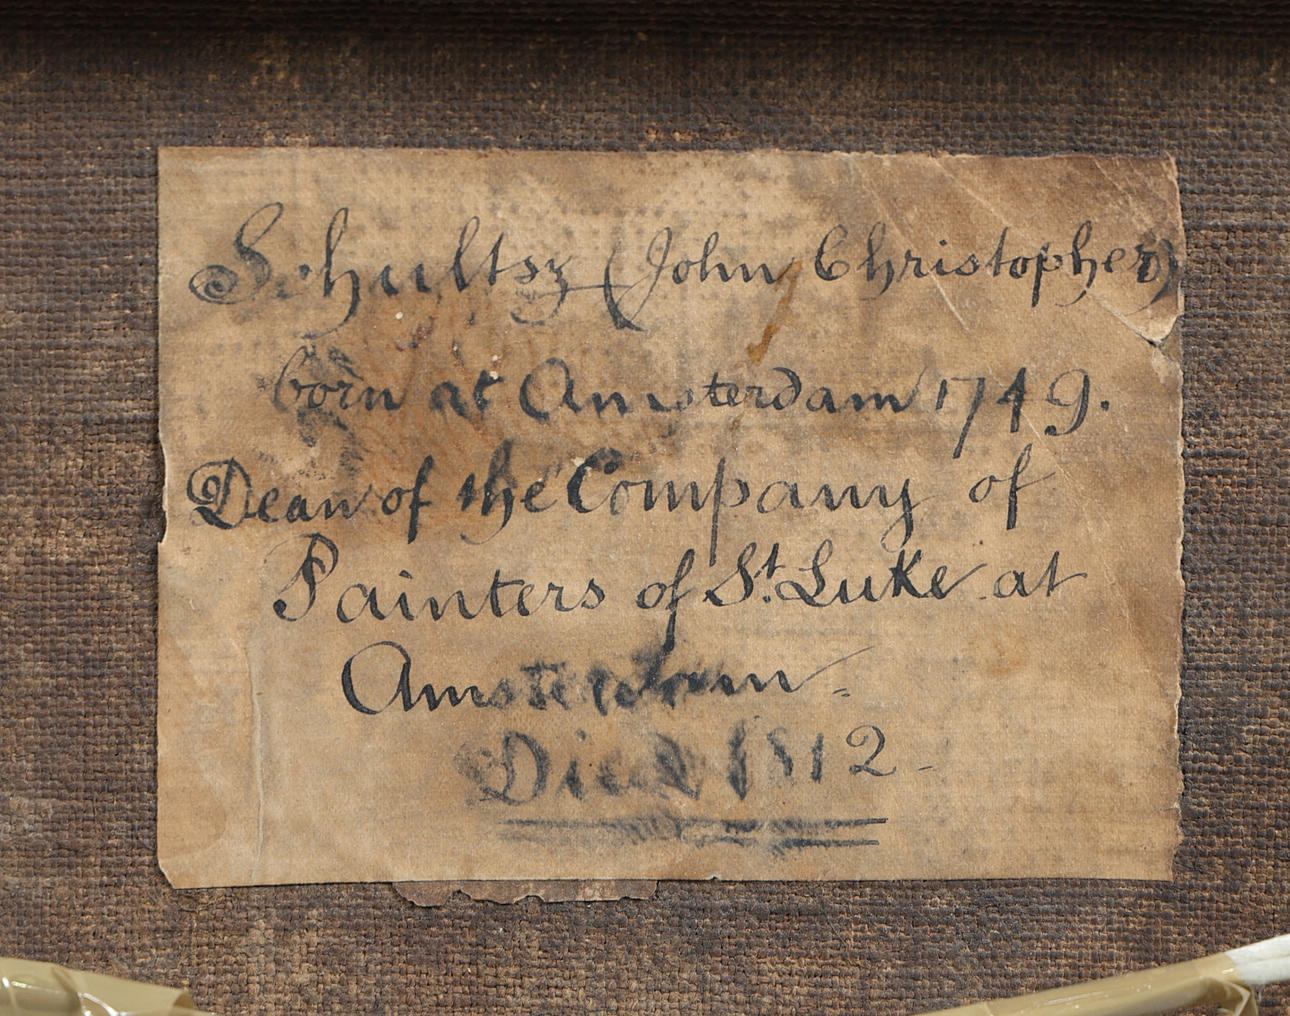 Schultsz (John Christopher)
born at Amsterdam 1749.
Dean of the Company of
Painters of St. Luke at
Amsterdam.
Died 1812